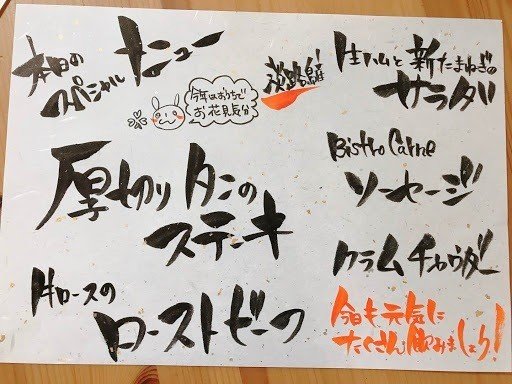 本日の
スペシャル
メニュー
今年はおうちで
お花見気分
厚切りタンの
ステーキ
牛ロースの
ローストビーフ
淡路産!
生ハムと新たまねぎの
サラダ
Bistro Carne
ソーセージ
クラムチャウダー
今日も元気に
たくさん飲みましょう!